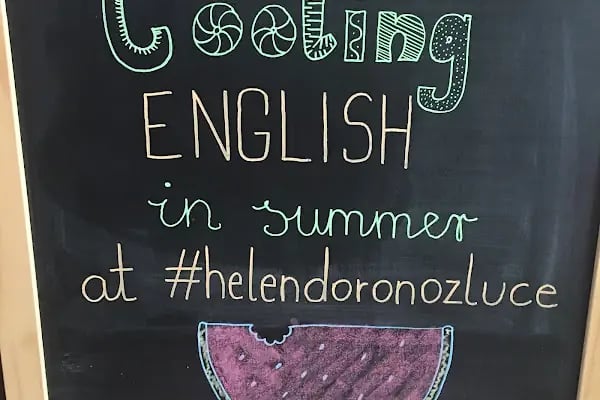 Cooling
ENGLISH
in summer
at #helendoronozluce